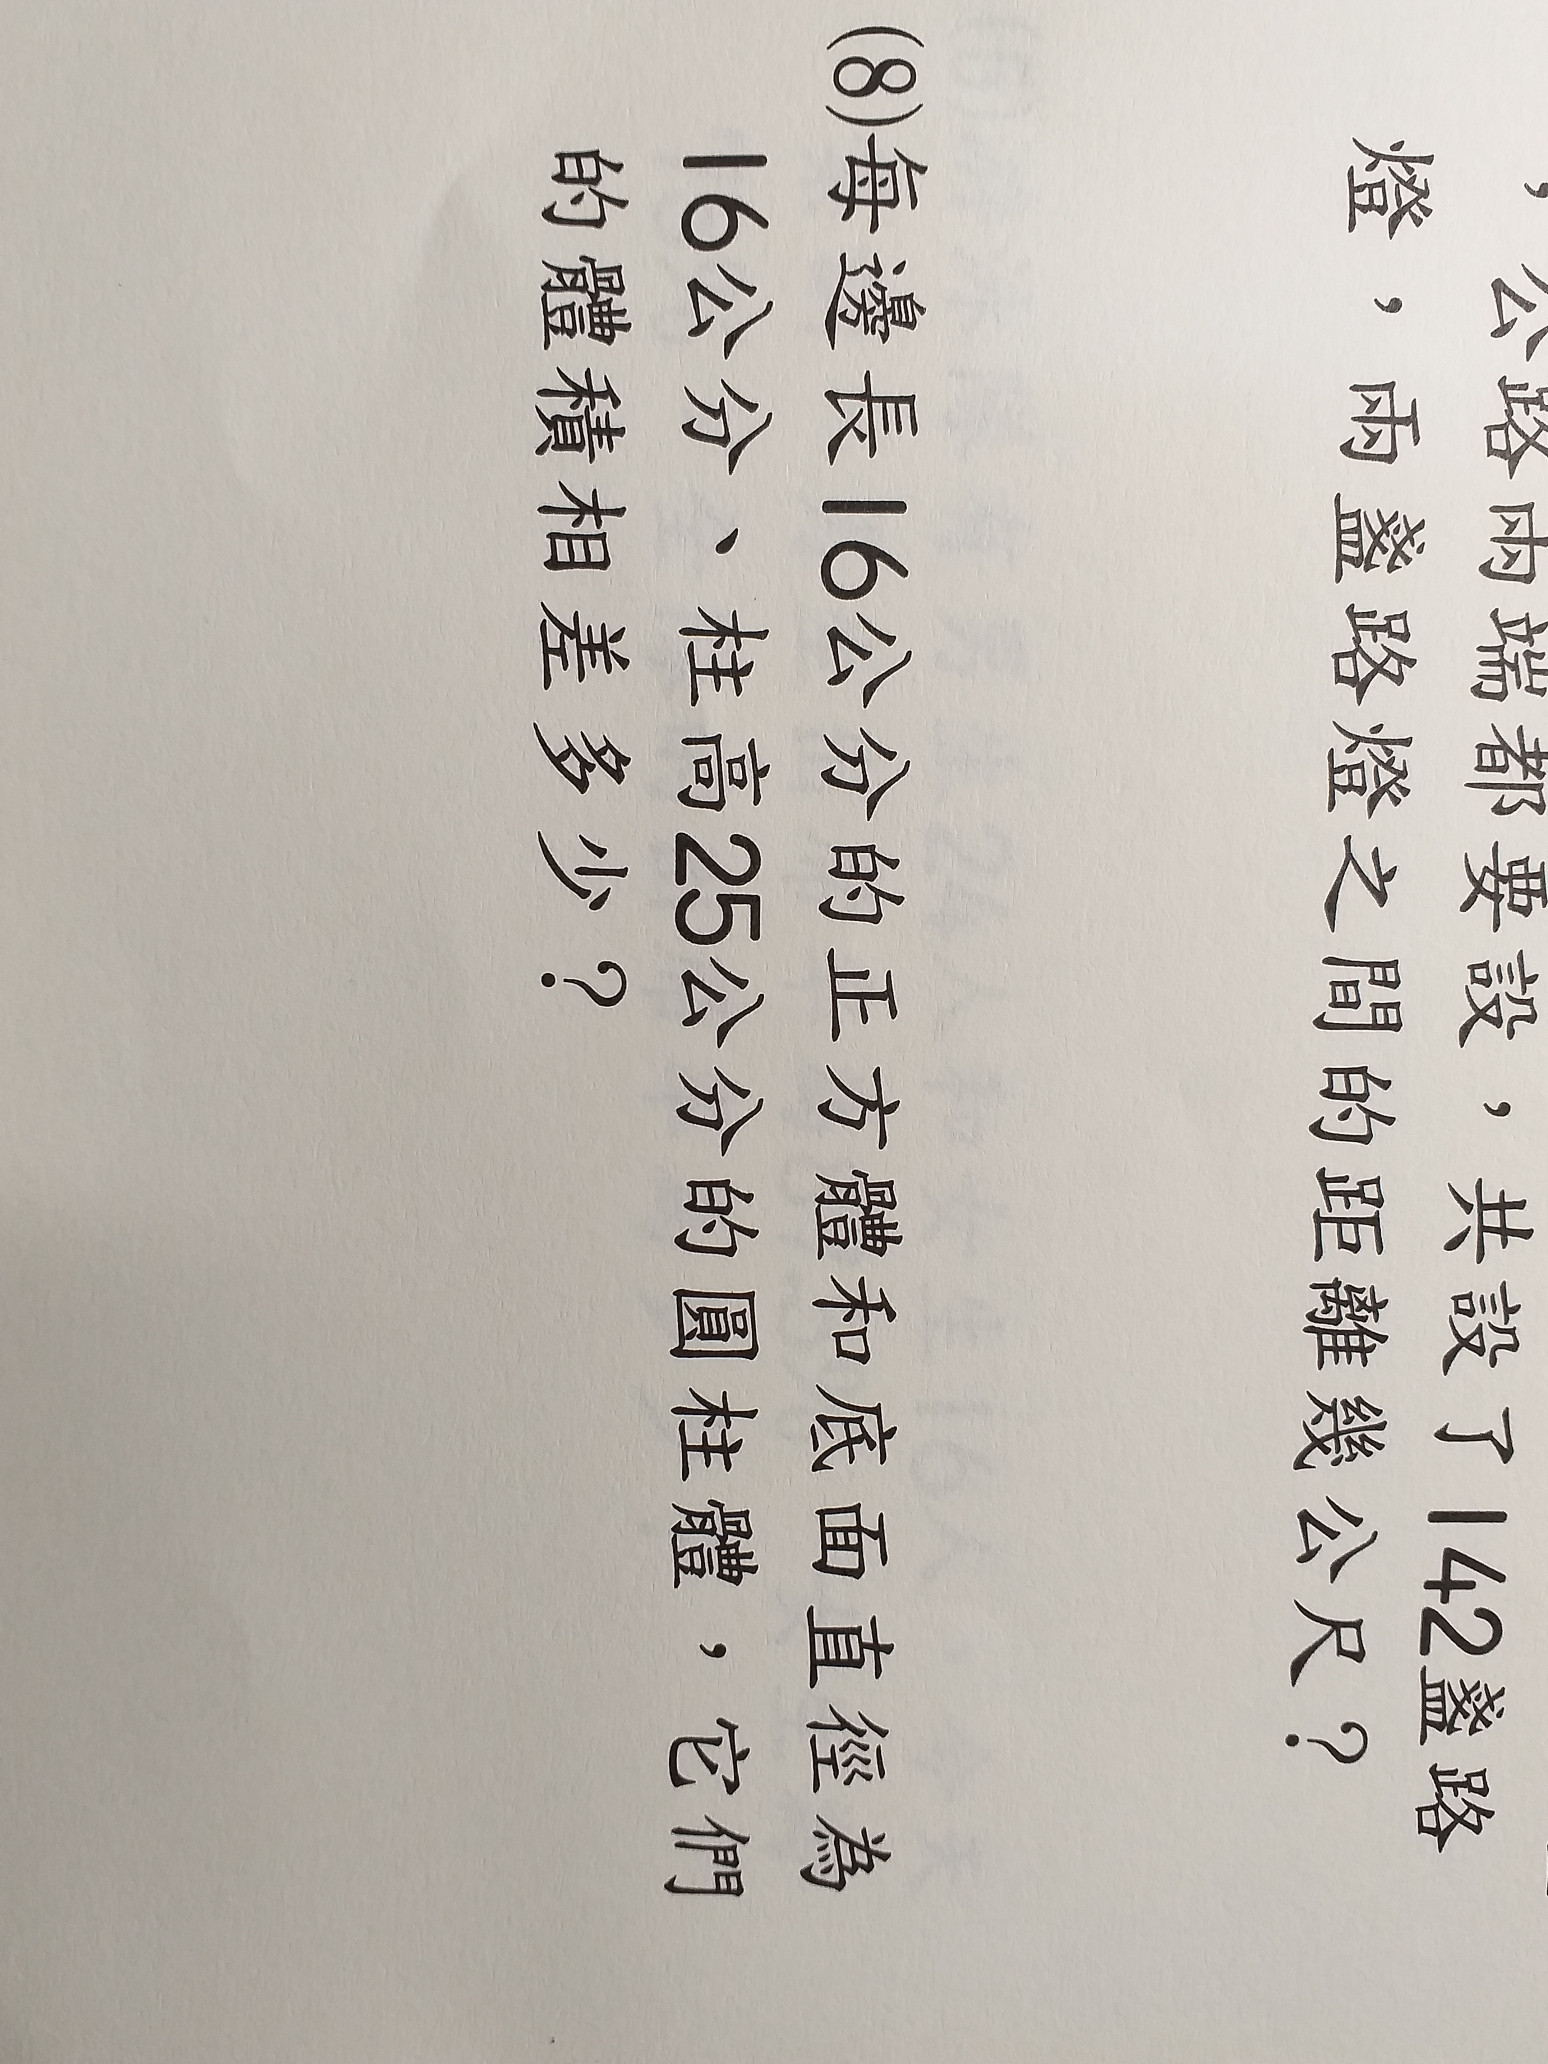 ，公路兩端都要設，共設了142盞路
燈，兩盞路燈之間的距離幾公尺？
(8)每邊長16公分的正方體和底面直徑為
16公分、柱高25公分的圓柱體，它們
的體積相差多少？